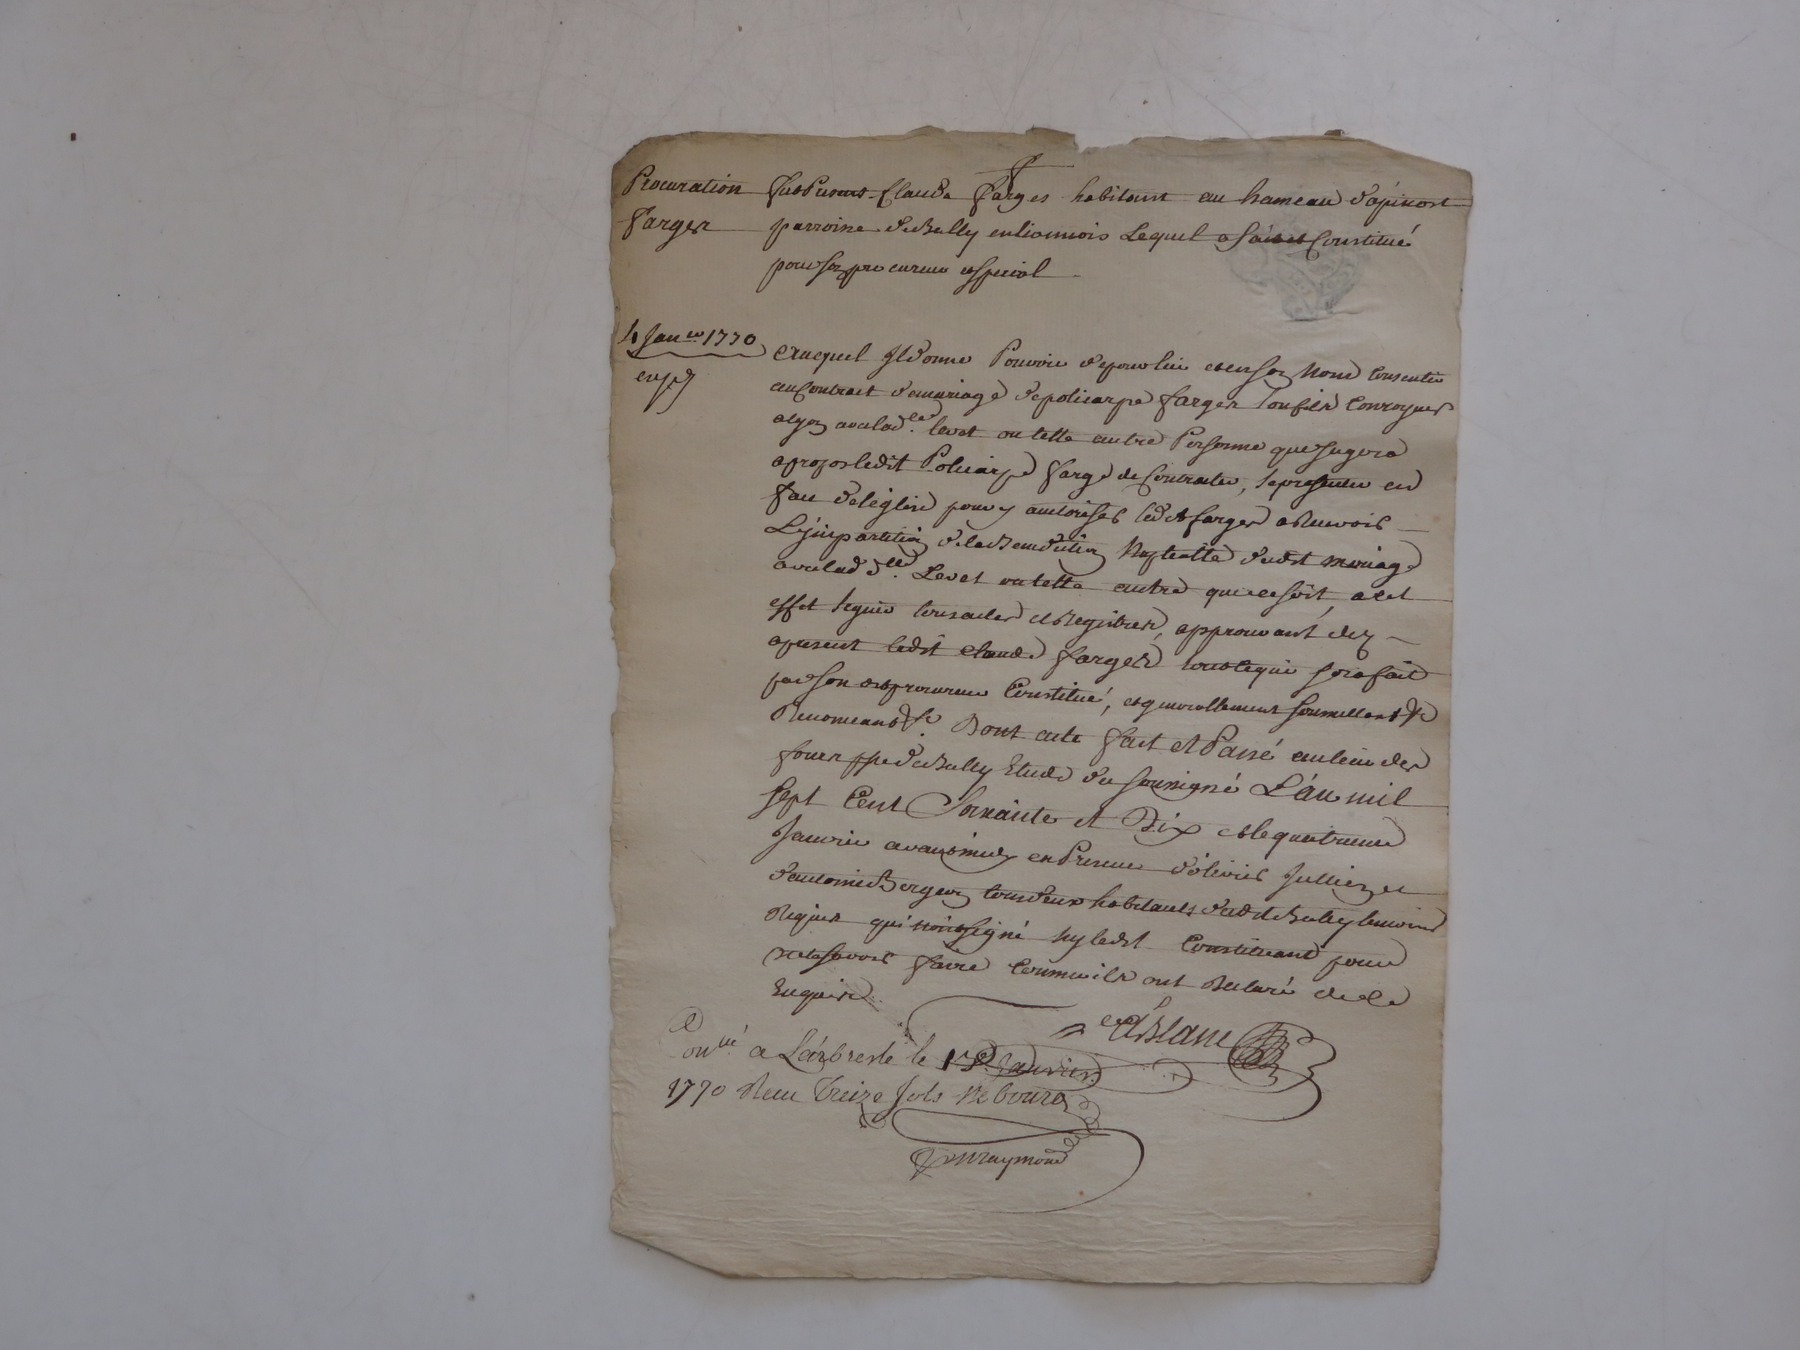 Procuration
Farges
4 Janer 1770
expd
fut Present Claude farges habitant au hameau d'apinost
parroisse de Bully en lionnois Lequel a fait et Constitué
pour son procureur espécial
Auquel Il donne Pouvoir de pour lui et en son Nom Consentir
au Contract de mariage de policarpe farges son fils Conroyeur
a lyon avec lad.lle levet ou telle autre Personne que Jugera
a propos ledit Policarpe farge de Contracter, se presenter en
face de l'église pour y autoriser led.t farges a Recevoir
L'impartition de la Benediction Nuptialle dudit mariage
avec lad. dlle. Levet ou telle autre que ce soit, a cet
effet signer tous actes et Registres, approuvant dez
apresent ledit Claude farges tout ce qui sera fait
par son dit procureur Constitué, et generallement soumettant &c
Renonceant &c. Dont acte fait et Passé au lieu des
fours ppe de Bully Etude du soussigné L'an mil
sept Cent Soixante et Dix et le quatrieme
Janvier avant midy en Presence d'olivier Jullien et
d'antoine Bergeron tous deux habitants dudit Bully temoins
Requis qui n'ont signé ny ledit Constituant pour
ne le savoir faire comme ils ont Declaré de ce
Enquis
Blanc
Con.llé a L'arbresle le 15 Janvier
1770 Reçu Treize sols
Raymond